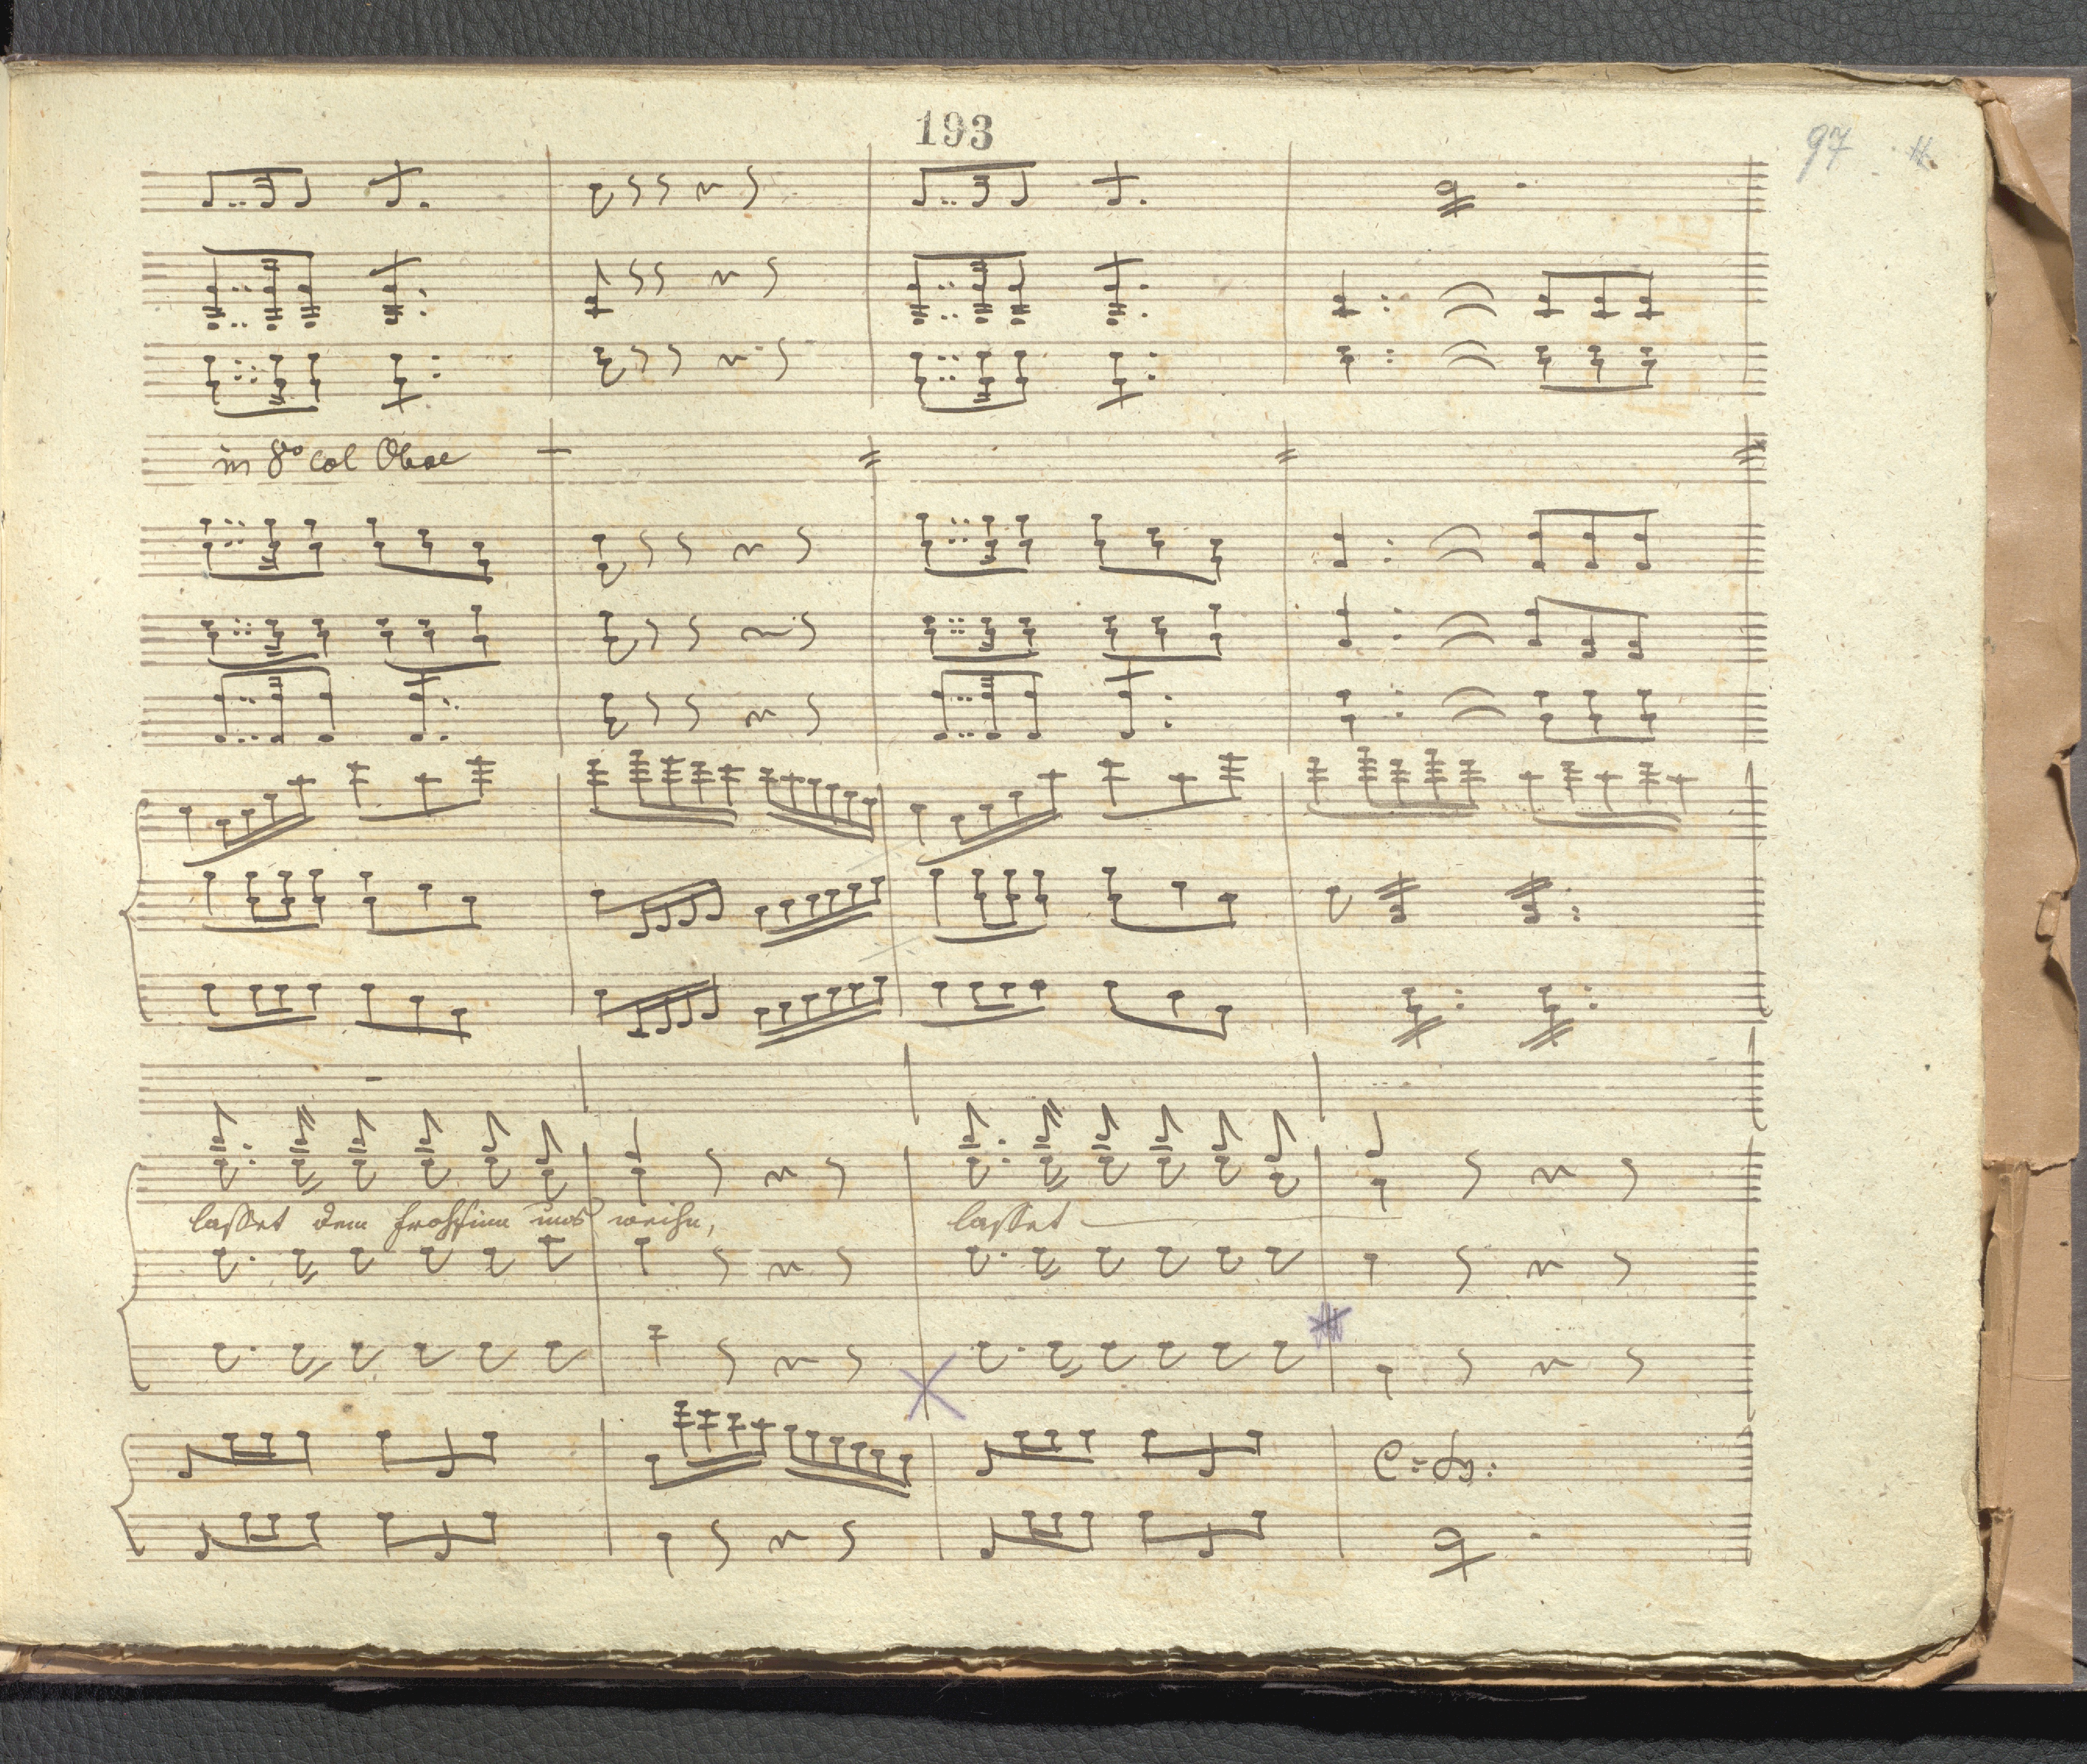 193
97
in 8vo col Oboe
lasset dem Frohsinn uns weihn,
lasset